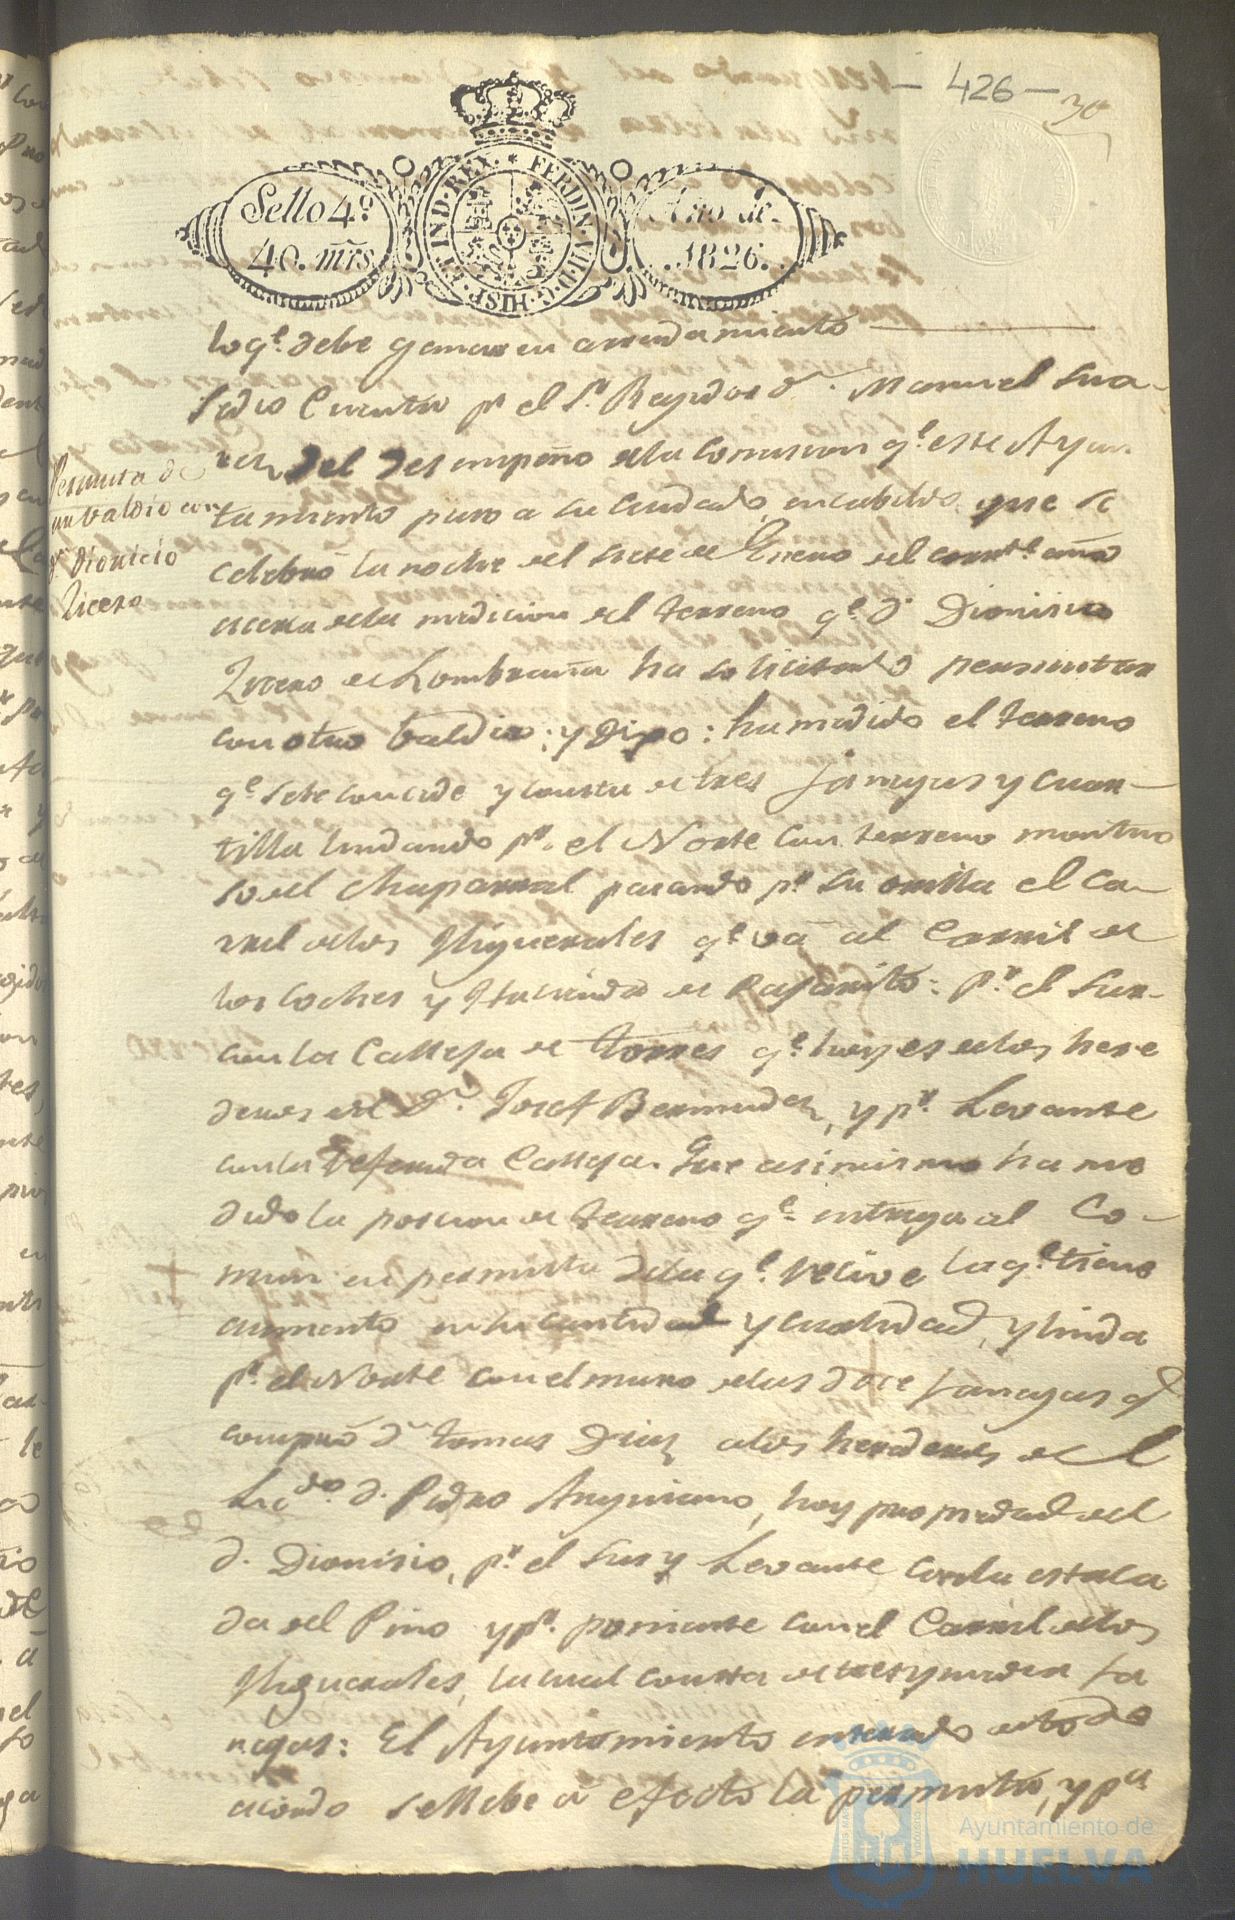 - 426 -
30
Sello 4º
40. mrs
HISP. ET IND. REX. * FERDIN. VII. D. G.
Año de
1826.
lo qe. debe ganar en arrendamiento
Se dio Cuenta pr el Sr. Regidor Dn. Manuel Sua-
rez del desempeño de la Comision qe. este Ayun
tamiento puso a su cuidado, en cabildo que se
celebró la noche del siete de Enero del corrte. año
acerca de la medicion del terreno qe. Dn. Dionisio
Permuta de
un baldio con
Dn. Dionicio
Licero
de Lombraña ha solicitado permutar
con otro baldio; y dijo: ha medido el terreno
qe. se le concede y consta de tres fanegas y cuar-
tilla lindando pr. el Norte con terreno montuo
so del Chaparral pasando pr. su orilla el Ca-
rril de los Higuerales qe. va al Carril de
los Coches y Hacienda de Pajarito: Pr. el Sur
con la Calleja de Torres qe. hoy es de los here
deros del Dr. Josef Bermudez, y pr. Levante
con la referida Calleja. Que asimismo ha me
dido la porcion de terreno qe. entrega al Co-
mun en permuta de la qe. recive la qe. tiene
aumento en su cantidad y cualidad, y linda
pr. el Norte con el muro de las doce fanegas qe
compró Dn. Tomas Diaz a los herederos de el
Licdo. D. Pedro Anguiano, hoy propiedad del
D. Dionisio, pr. el Sur y Levante con la estaca
da del Pino y pr. poniente con el Carril de los
Higuerales, la cual consta de tres y media fa
negas: El Ayuntamiento enterado de todo
acordó se llebe á efecto la permuta, y pa
Ayuntamiento de
HUELVA